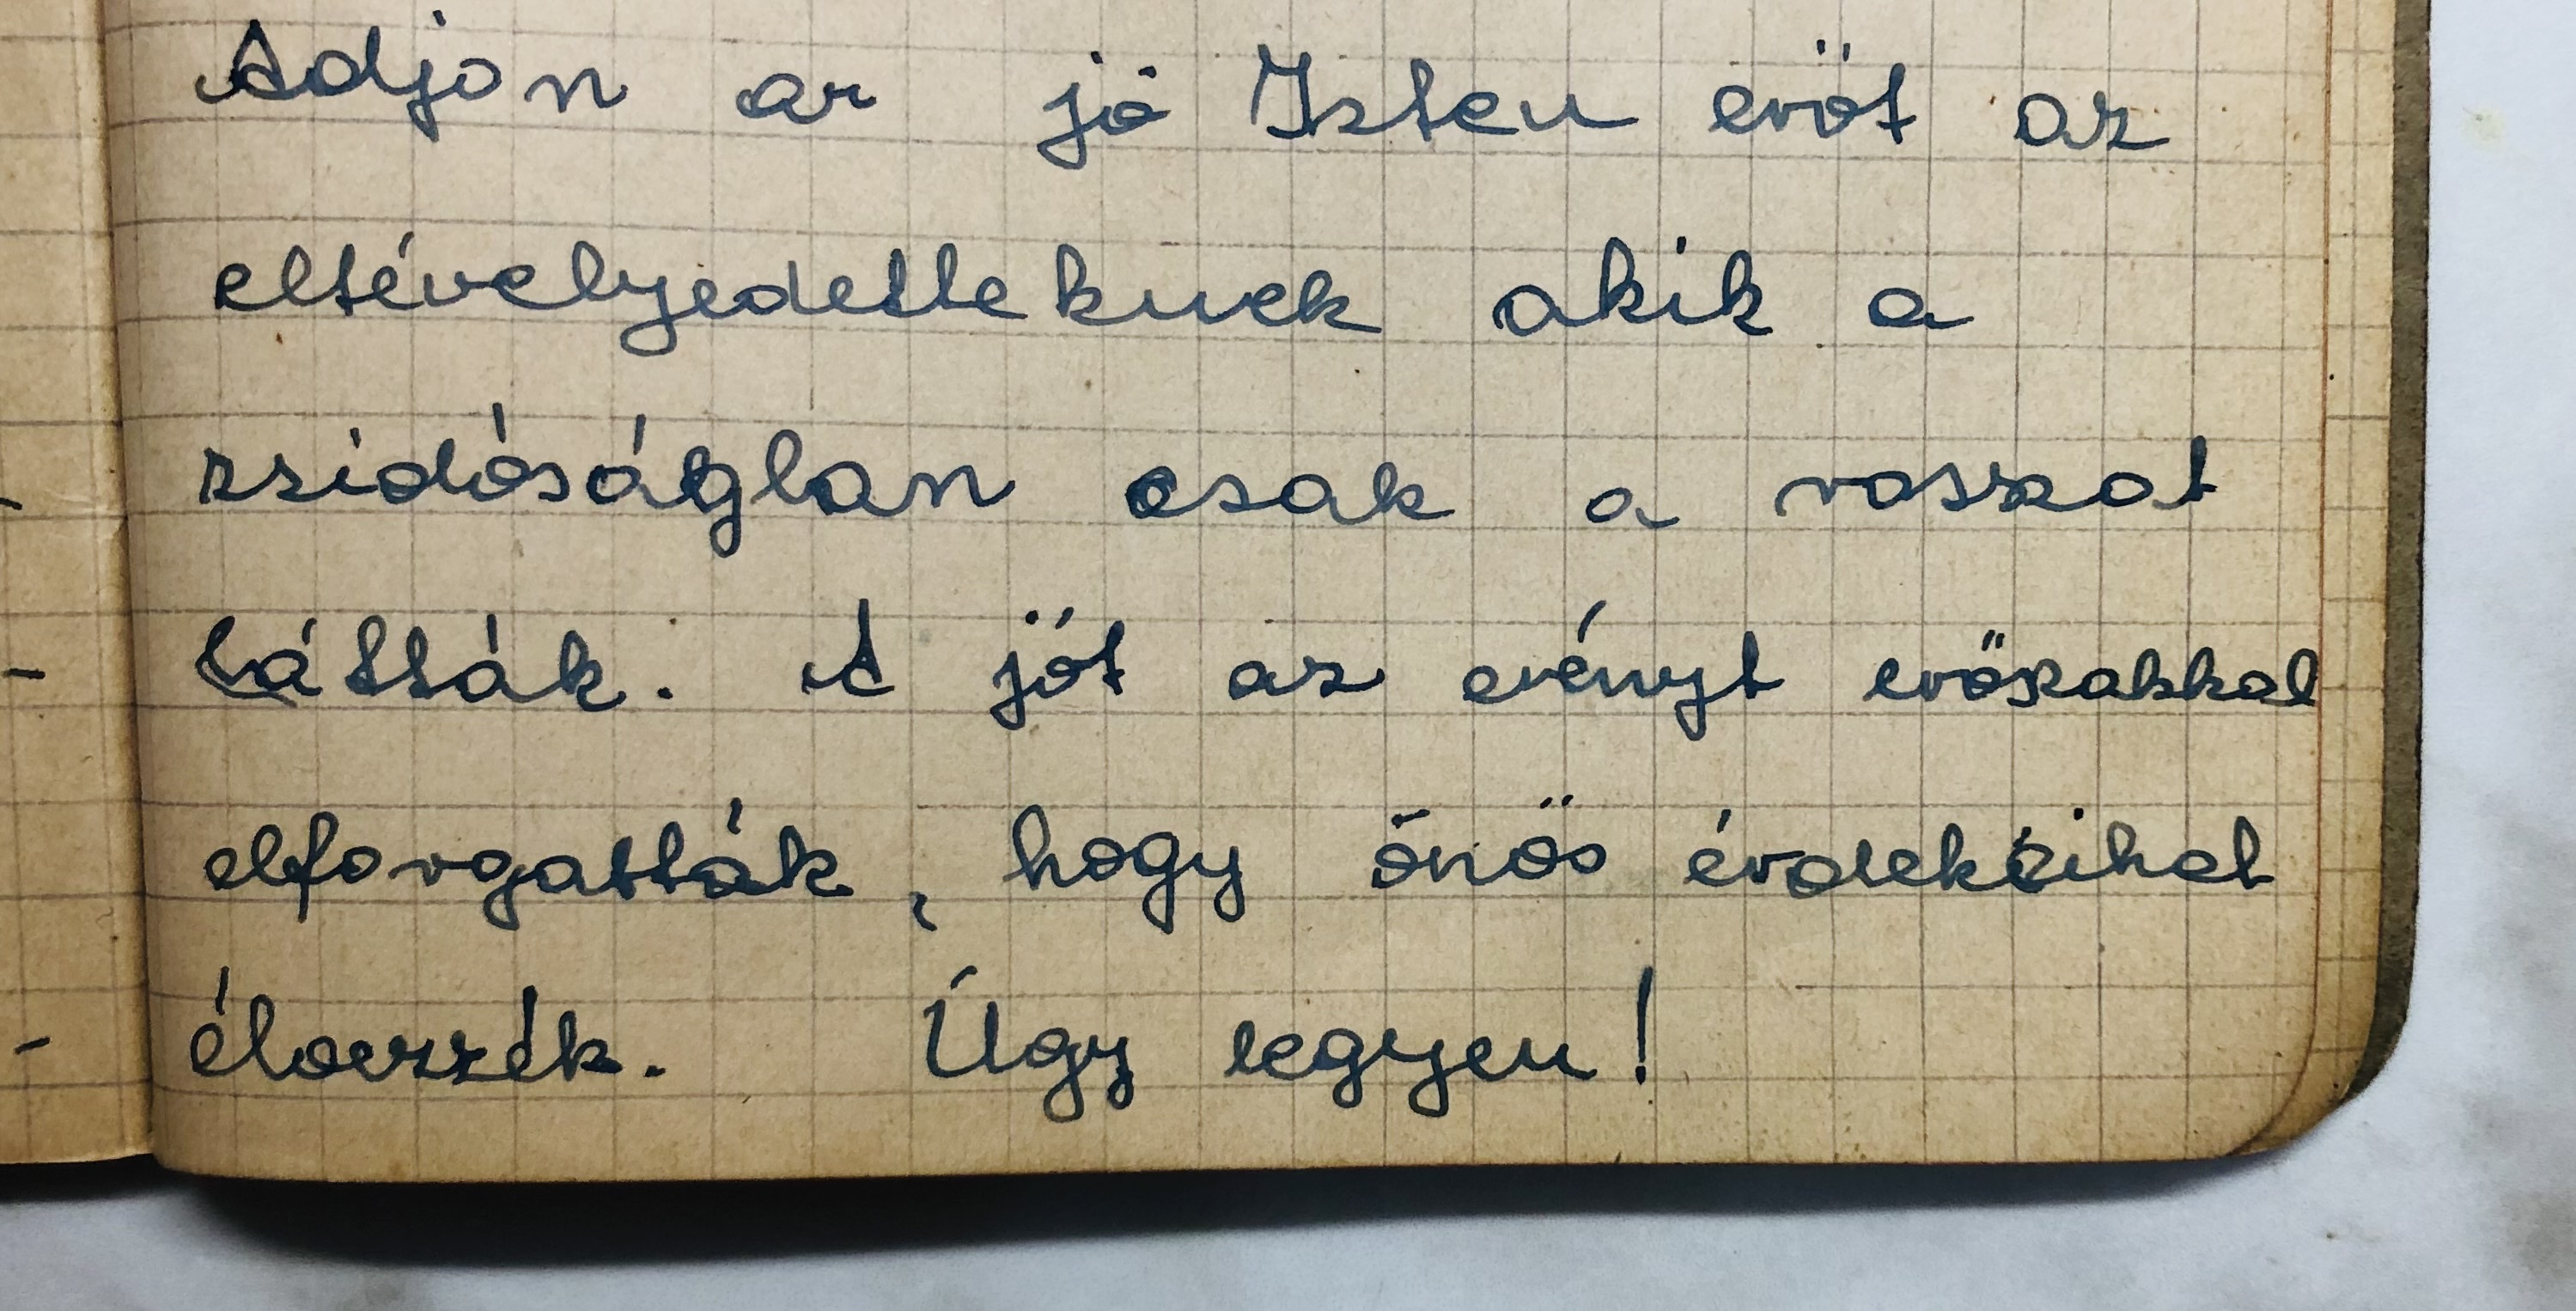 Adjon az jó Isten erőt az
eltévelyedetteknek akik a
zsidóságban csak a rosszat
látták. A jót az erényt erőszakkal
elforgatták, hogy önös érdekeihet
élvezzék. Úgy legyen!